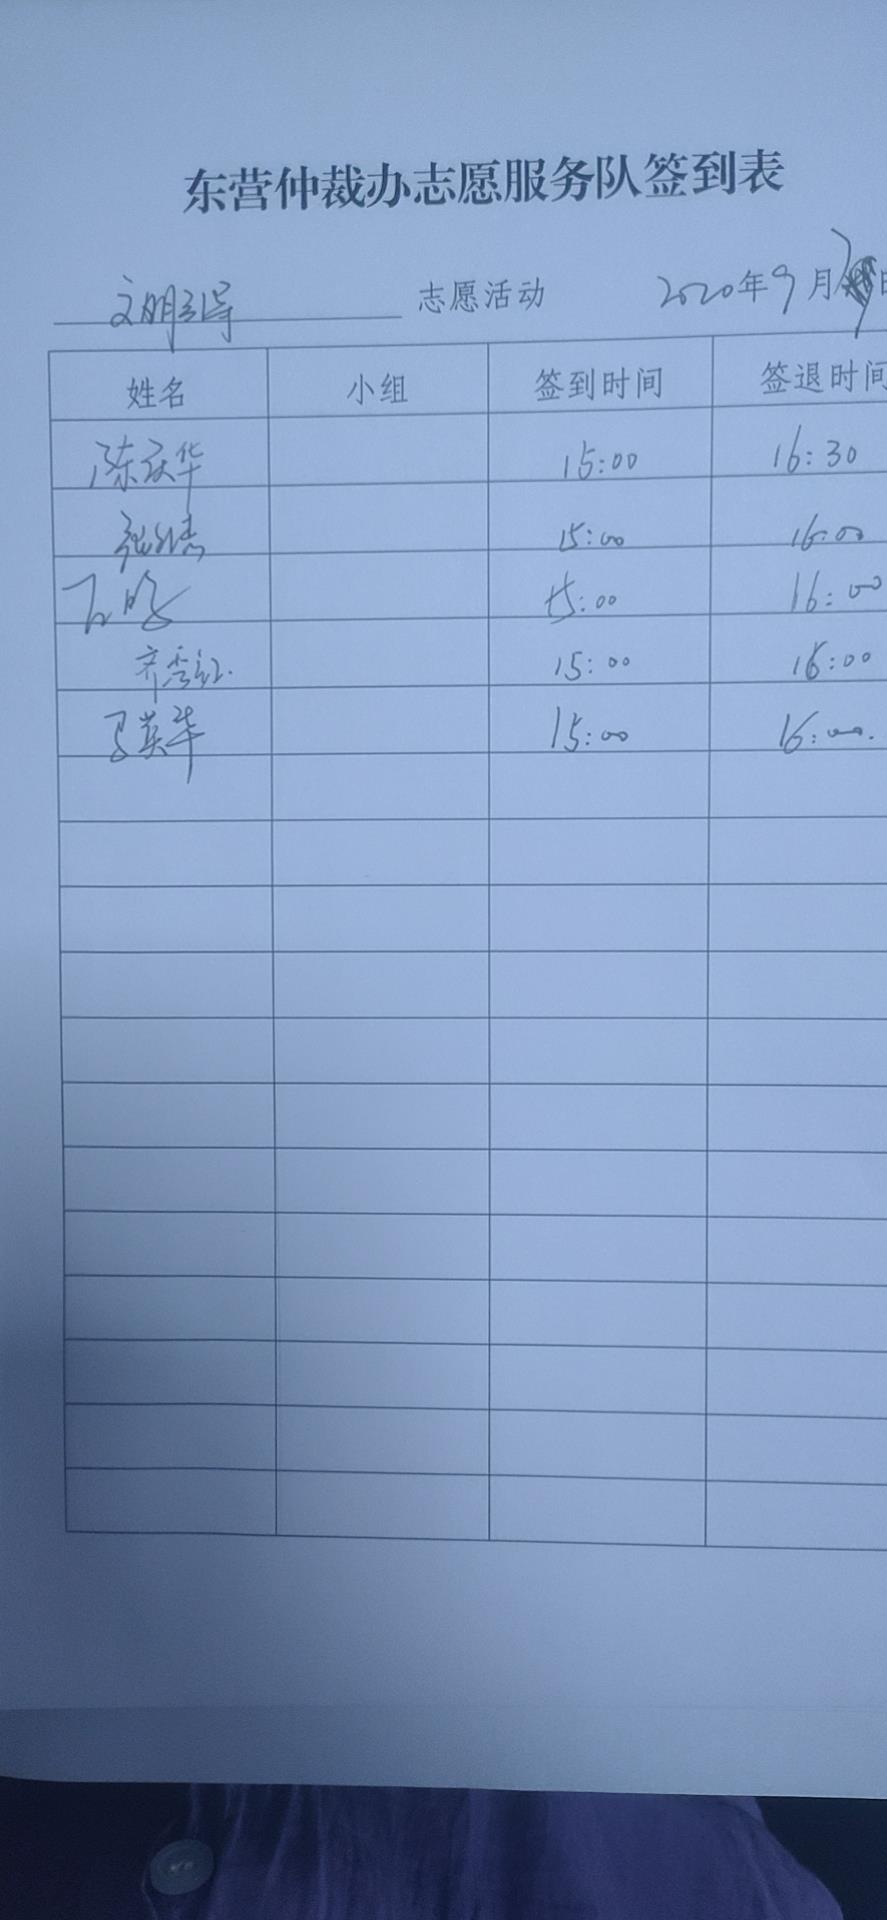 东营仲裁办志愿服务队签到表
文明引导 志愿活动 2020年9月 日
姓名 小组 签到时间 签退时间
陈庆华 15:00 16:30
15:00 16:00
15:00 16:00
齐秀红 15:00 16:00
马英华 15:00 16:00